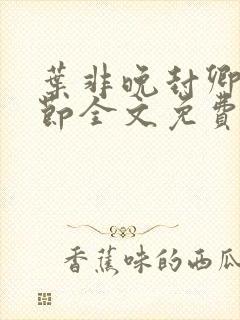 葉非晚封卿
節全文免費
香蕉味的西瓜